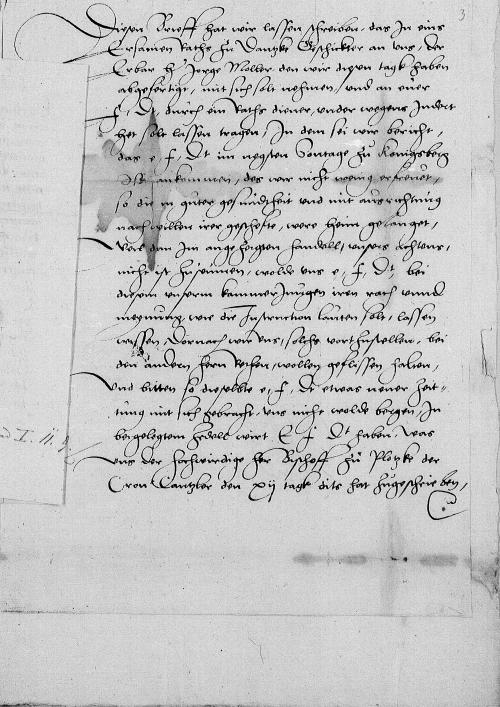 3
Diesen Brieff hat wir lassen schreiben, das In eins
Ersamen Raths zu Dantzke Geschickter an uns, der
Erbar h. Jorge Moller den wir disen tagk haben
abgefertigt, mit sich solt nehmen, und an euer
f. Dt. durch ein Raths diener, under wegens Indert
het solt lassen tragen, In dem sei wir bericht,
das e. f. Dt im negsten Sontage zu Konigsberg
ist ankommen, des wir nicht wenig erfreuet,
so die in guter gesundtheit und mit ausrichtung
nach willen irer geschefte, were heim gelanget,
Weil dan Im angezeigten handell, unsers achtens,
nicht ist zuseumen, wolde uns e. f. Dt bei
diesem unserm kammer Jungen iren rath unnd
meynung, wie die Instruction lauten solt, lassen
wissen, Dornach wir uns, solchs vorthustellen, bei
den andern hern Rethen, wollen geflissen halten,
Und bitten so dieselbte e. f. Dt etwas neuer zeit-
tung mit sich gebracht, uns nicht wolde bergen, In
beigelegtem Zedell wirt E f Dt haben, was
uns der hochwirdige her Bischoff zu Plotzke der
Cron Cantzler den xij tagk dits hat zugeschrieben,